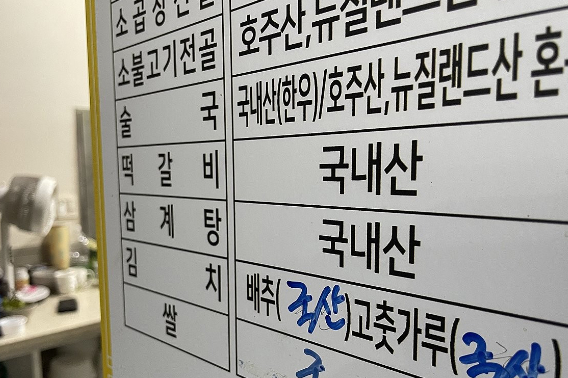 소곱창전골 호주산,뉴질랜드산
소불고기전골 국내산(한우)/호주산,뉴질랜드산 혼
술국
떡갈비 국내산
삼계탕 국내산
김치 배추(국산)고춧가루(국산)
쌀